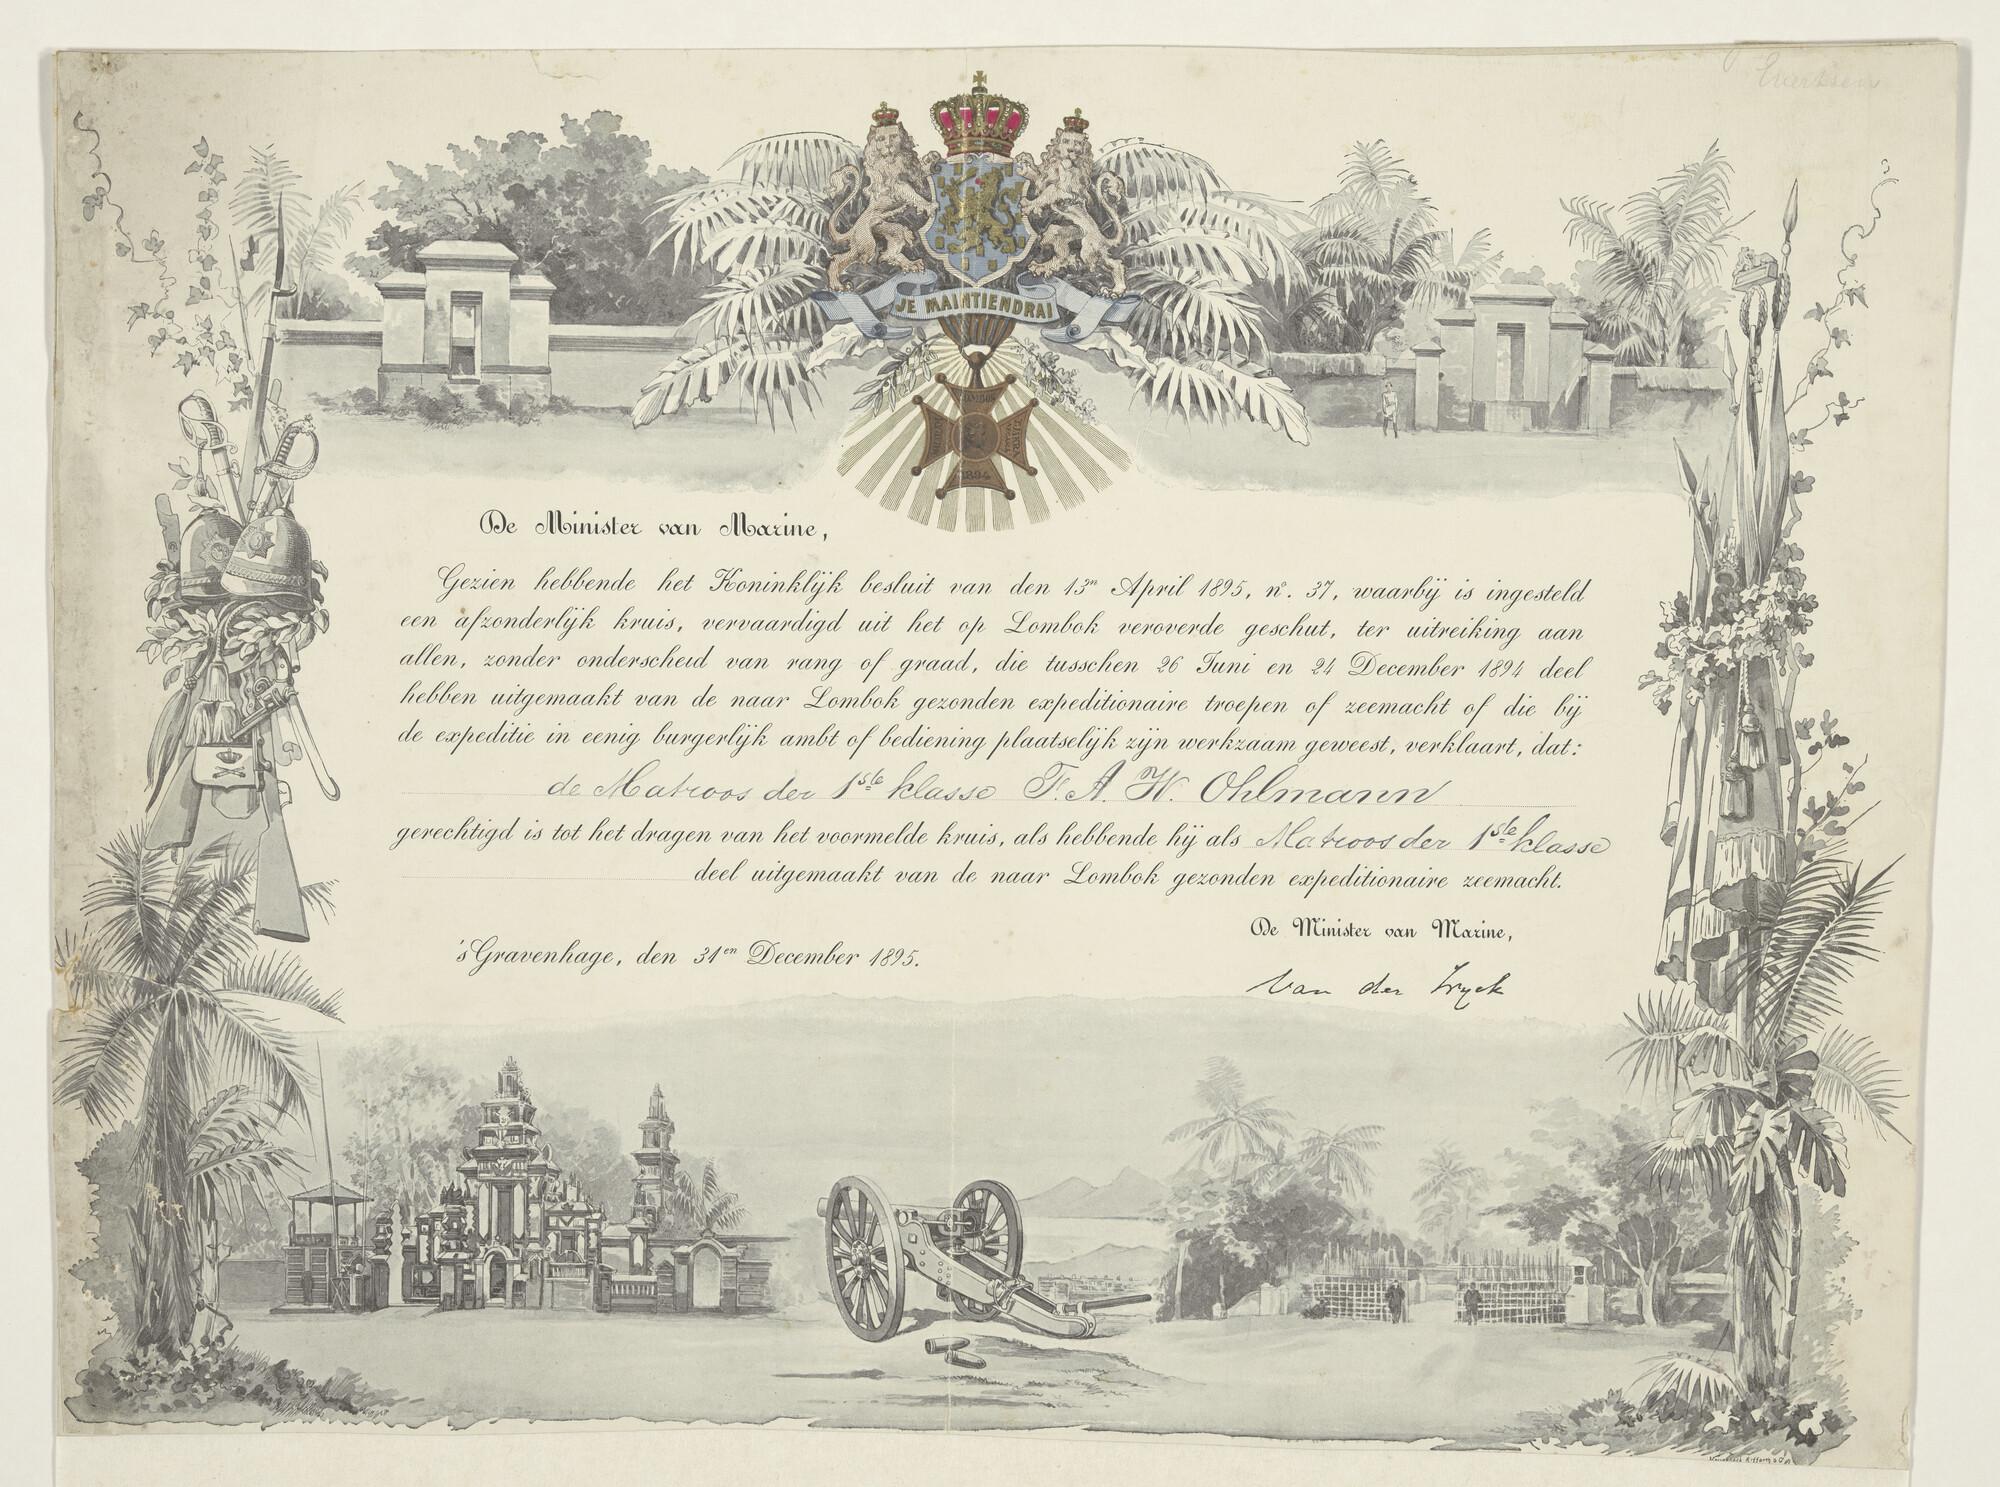 Evertsen
JE MAINTIENDRAI
LOMBOK
1894
De Minister van Marine,
Gezien hebbende het Koninklijk besluit van den 13n April 1895, no. 37, waarbij is ingesteld
een afzonderlijk kruis, vervaardigd uit het op Lombok veroverde geschut, ter uitreiking aan
allen, zonder onderscheid van rang of graad, die tusschen 26 Juni en 24 December 1894 deel
hebben uitgemaakt van de naar Lombok gezonden expeditionaire troepen of zeemacht of die bij
de expeditie in eenig burgerlijk ambt of bediening plaatselijk zijn werkzaam geweest, verklaart, dat:
de Matroos der 1ste klasse F. A. W. Ohlmann
gerechtigd is tot het dragen van het voormelde kruis, als hebbende hij als Matroos der 1ste klasse
deel uitgemaakt van de naar Lombok gezonden expeditionaire zeemacht.
De Minister van Marine,
's Gravenhage, den 31en December 1895.
Van der Wyck